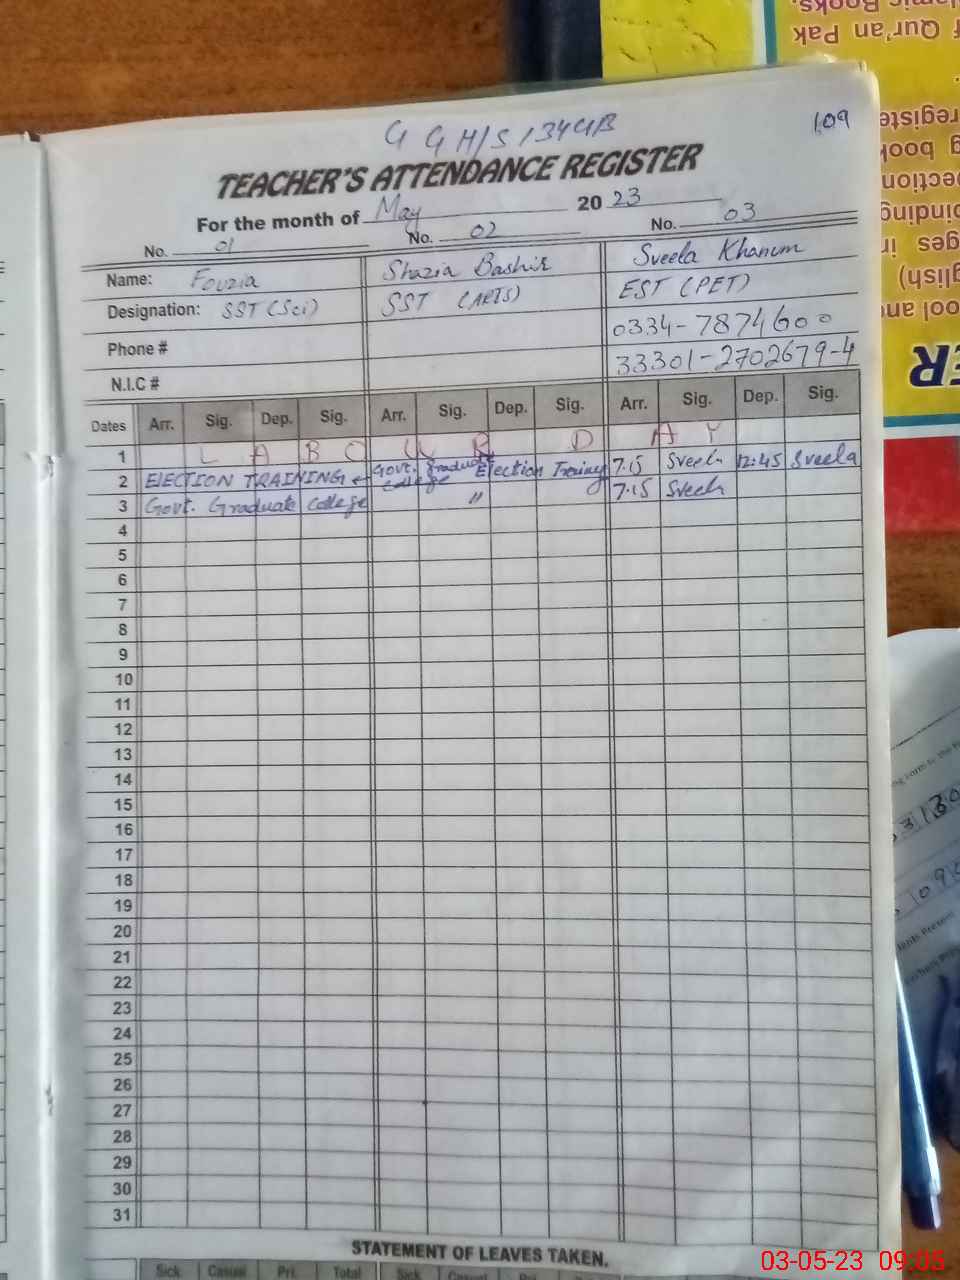 G G H/S 134GB
109
TEACHER'S ATTENDANCE REGISTER
For the month of May 2023
No. 01 No. 02 No. 03
Name: Fouzia Shazia Bashir Sveela Khanum
Designation: SST (Sci) SST (ARTS) EST (PET)
Phone # 0334-7874600
N.I.C # 33301-2702679-4
Dates Arr. Sig. Dep. Sig. Arr. Sig. Dep. Sig. Arr. Sig. Dep. Sig.
1 L A B O U R D A Y
2 ELECTION TRAINING Govt. Graduate College Election Training 7.15 Sveela 12:45 Sveela
3 Govt. Graduate College " 7.15 Sveela
4
5
6
7
8
9
10
11
12
13
14
15
16
17
18
19
20
21
22
23
24
25
26
27
28
29
30
31
STATEMENT OF LEAVES TAKEN.
Sick Casual Pri. Total Sick Casual
03-05-23 09:05
amic Books.
f Qur'an Pak
registe
g book
ection
binding
ges in
glish)
ool and
ER